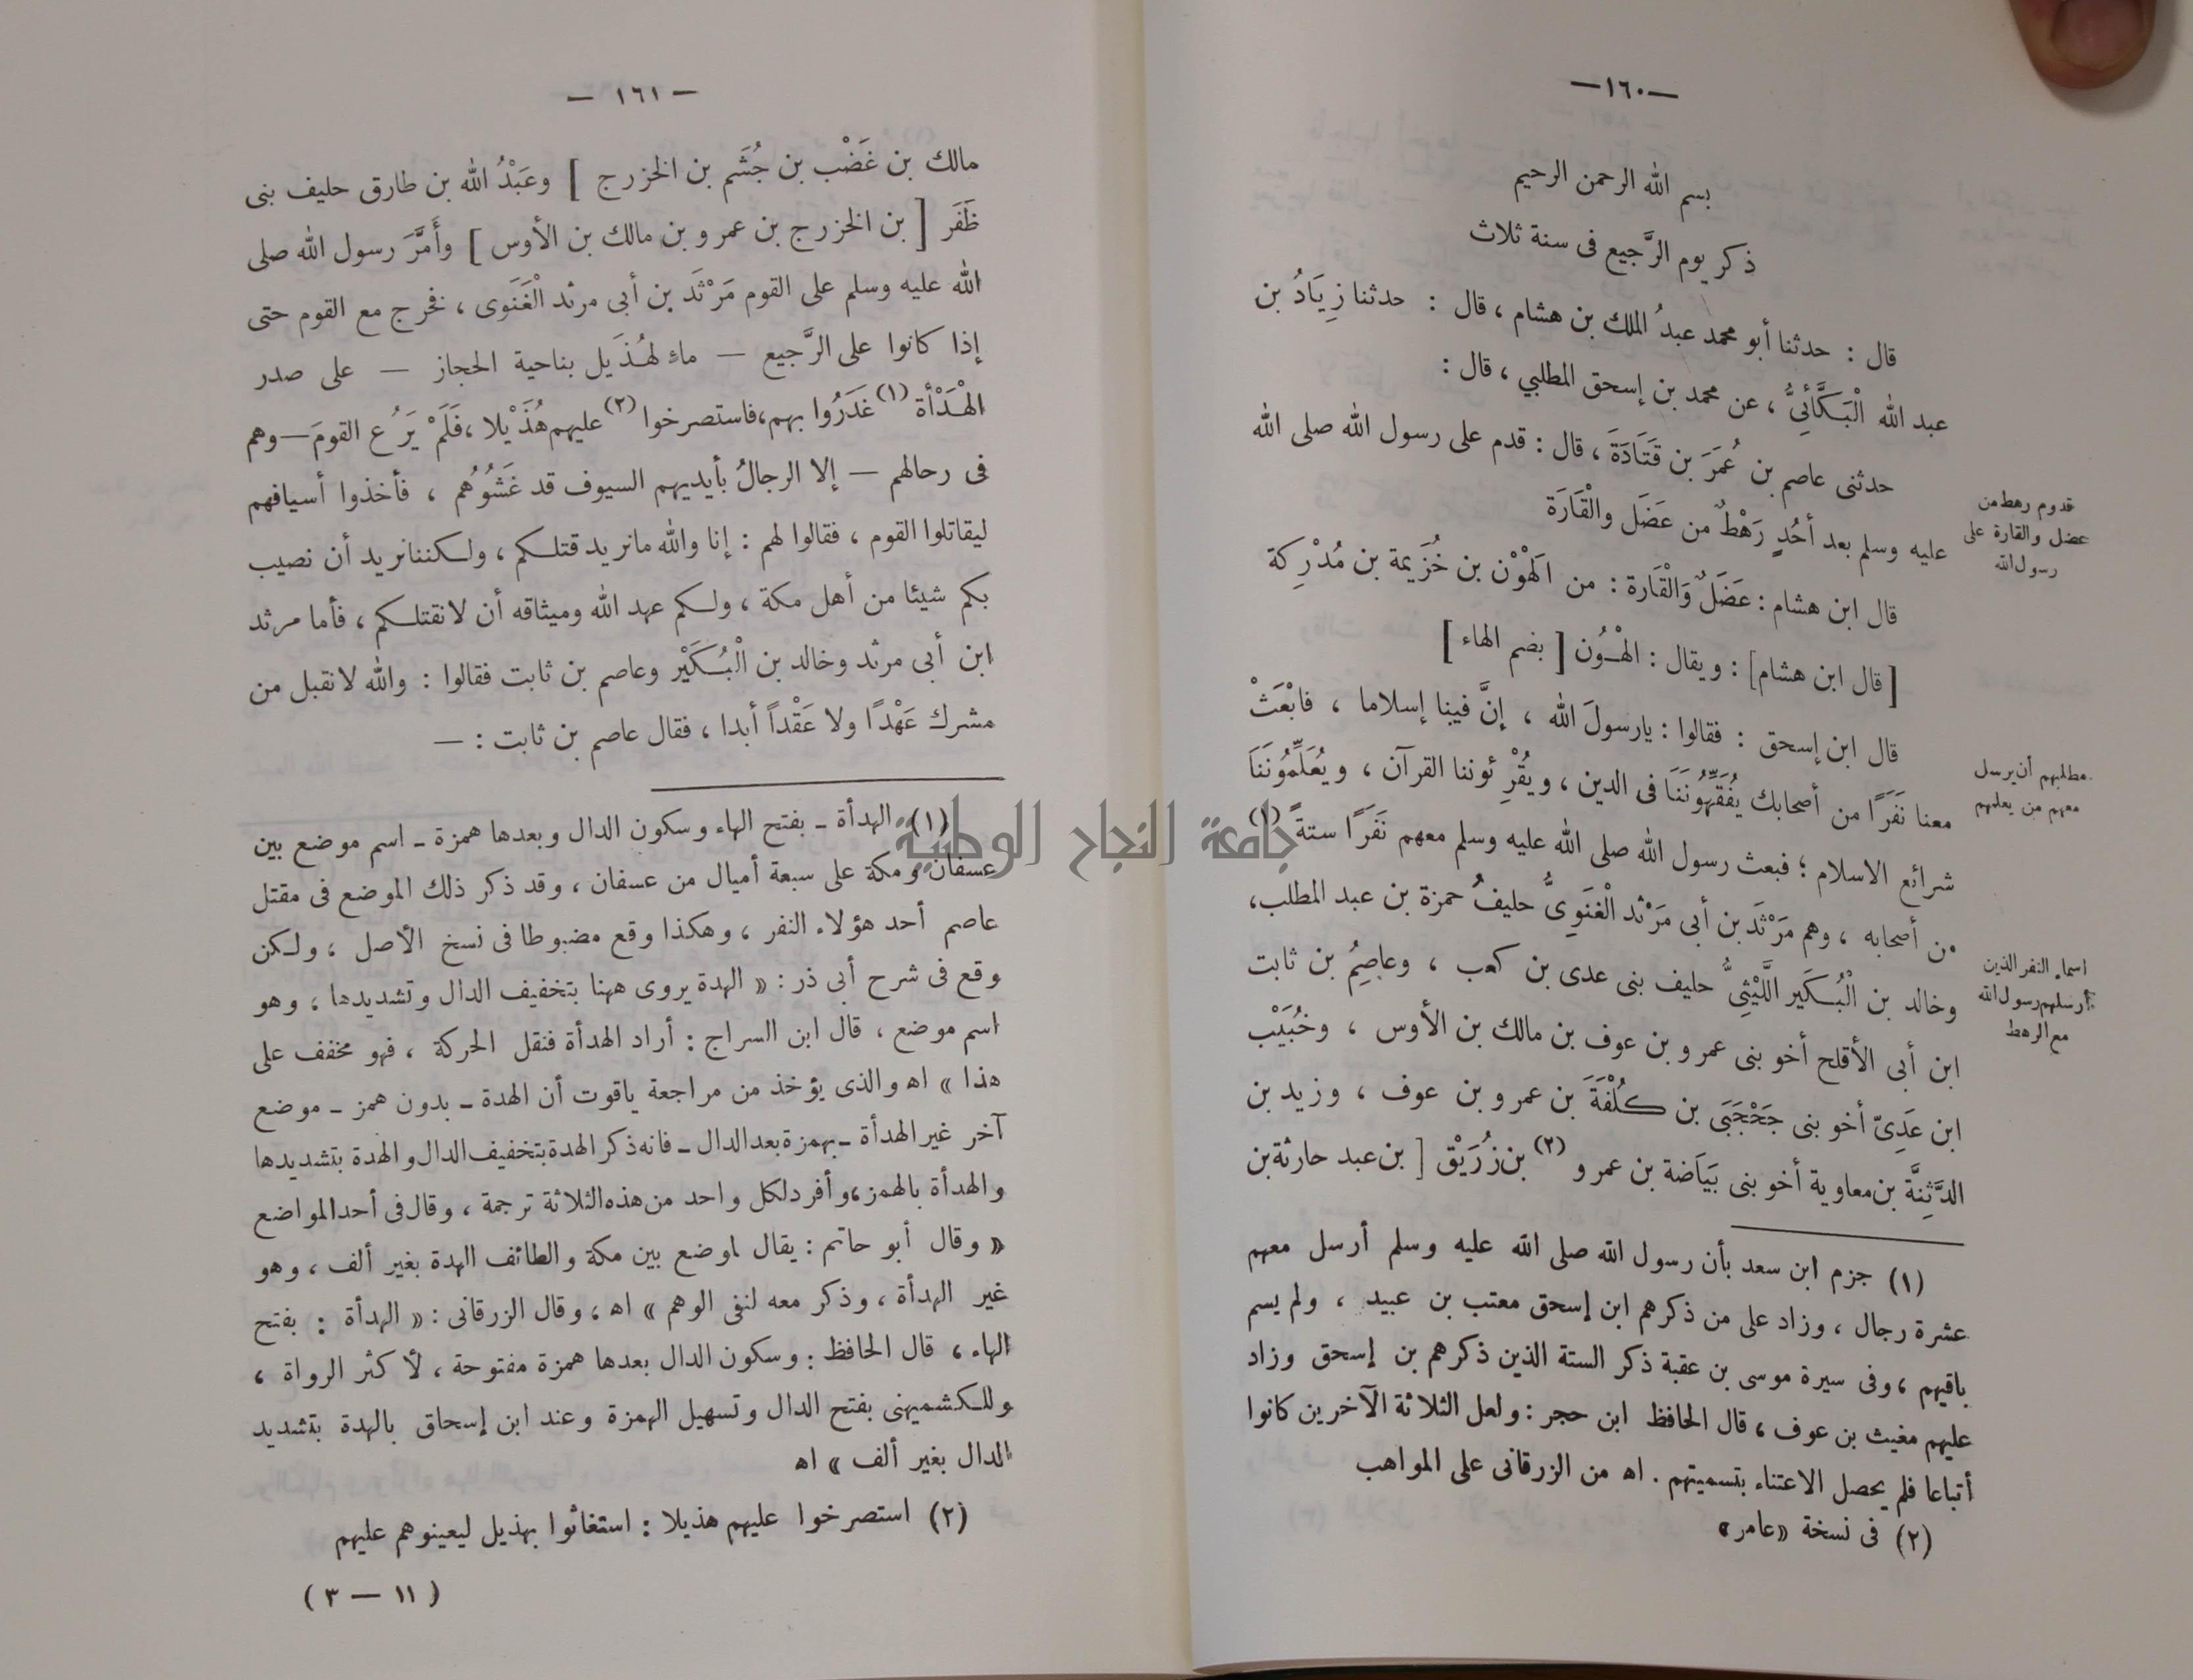 —١٦٠—
بسم الله الرحمن الرحيم
ذكر يوم الرَّجيع فى سنة ثلاث
قال : حدثنا أبو محمد عبدُ الملك بن هشام ، قال : حدثنا زِيَادُ بن
عبد الله الْبَكَّائِىُّ ، عن محمد بن إسحق المطلبي ، قال :
حدثنى عاصم بن عُمَرَ بن قَتَادَةَ ، قال : قدم على رسول الله صلى الله
عليه وسلم بعد أحُدٍ رَهْطٌ من عَضَل والْقَارَة
قدوم رهط من
عضل والقارة على
رسول الله
قال ابن هشام : عَضَلٌ وَالْقَارة : من اَلهْوْن بن خُزَيمة بن مُدْرِكة
[ قال ابن هشام] : ويقال : الهْـُون [ بضم الهاء ]
قال ابن إسحق : فقالوا : يارسولَ الله ، إنَّ فينا إسلاما ، فابْعَثْ
معنا نَفَرًا من أصحابك يُفَقِّهُونَنَا فى الدين ، ويُقْرِئوننا القرآن ، ويُعَلِّمُونَنَا
مطلبهم أن يرسل
معهم من يعلمهم
شرائع الاسلام ؛ فبعث رسول الله صلى الله عليه وسلم معهم نَفَرًا ستةً (١)
من أصحابه ، وهم مَرْثَد بن أبى مَرْثد الْغَنَوِىُّ حليفُ حمزة بن عبد المطلب،
وخالد بن الْبُـكَير اللَّيْثِىُّ حليف بنى عدى بن كعب ، وعاصِمُ بن ثابت
اسماء النفر الذين
أرسلهم رسول الله
مع الرهط
ابن أبى الأقلح أخو بنى عمرو بن عوف بن مالك بن الأوس ، وخُبَيْب
ابن عَدِىّ أخو بنى جَحْجَبَى بن كُلْفَةَ بن عمرو بن عوف ، وزيد بن
الدَّثِنَّة بن معاوية أخو بنى بَيَاضة بن عمرو (٢) بن زُرَيْق [ بن عبد حارثة بن
(١) جزم ابن سعد بأن رسول الله صلى الله عليه وسلم أرسل معهم
عشرة رجال ، وزاد على من ذكرهم ابن إسحق معتب بن عبيد ، ولم يسم
باقيهم ، وفى سيرة موسى بن عقبة ذكر الستة الذين ذكرهم بن إسحق وزاد
عليهم مغيث بن عوف ، قال الحافظ ابن حجر : ولعل الثلاثة الآخرين كانوا
أتباعا فلم يحصل الاعتناء بتسميتهم . اه من الزرقانى على المواهب
(٢) فى نسخة «عامر»
— ١٦١ —
مالك بن غَضْب بن جُشَم بن الخزرج ] وعَبْدُ الله بن طارق حليف بنى
ظَفَر [ بن الخزرج بن عمرو بن مالك بن الأوس ] وأَمَّرَ رسول الله صلى
الله عليه وسلم على القوم مَرْثَد بن أبى مرثد الْغَنَوى ، فخرج مع القوم حتى
إذا كانوا على الرَّجيع — ماء لهُـذَيل بناحية الحجاز — على صدر
الهْـدْأة (١) غَدَرُوا بهم، فاستصرخوا (٢) عليهم هُذَيْلا ، فَلَمْ يَرُع القومَ — وهم
فى رحالهم — إلا الرجالُ بأيديهم السيوف قد غَشُوُهُم ، فأخذوا أسيافهم
ليقاتلوا القوم ، فقالوا لهم : إنا والله مانريد قتلـكم ، ولـكننا نريد أن نصيب
بكم شيئا من أهل مكة ، ولـكم عهد الله وميثاقه أن لا نقتلـكم ، فأما مرثد
ابن أبى مرثد وخالد بن الْبُـكَيْر وعاصم بن ثابت فقالوا : والله لا نقبل من
مشرك عَهْدًا ولا عَقْداً أبدا ، فقال عاصم بن ثابت : —
(١) الهدأة ـ بفتح الهاء وسكون الدال وبعدها همزة ـ اسم موضع بين
عسفان ومكة على سبعة أميال من عسفان ، وقد ذكر ذلك الموضع فى مقتل
عاصم أحد هؤلاء النفر ، وهكذا وقع مضبوطا فى نسخ الأصل ، ولـكن
وقع فى شرح أبى ذر : « الهدة يروى ههنا بتخفيف الدال وتشديدها ، وهو
اسم موضع ، قال ابن السراج : أراد الهدأة فنقل الحركة ، فهو مخفف على
هذا » اه والذى يؤخذ من مراجعة ياقوت أن الهدة ـ بدون همز ـ موضع
آخر غير الهدأة ـ بهمزة بعد الدال ـ فانه ذكر الهدة بتخفيف الدال والهدة بتشديدها
والهدأة بالهمز، وأفرد لكل واحد من هذه الثلاثة ترجمة ، وقال فى أحد المواضع
« وقال أبو حاتم : يقال لموضع بين مكة والطائف الهدة بغير ألف ، وهو
غير الهدأة ، وذكر معه لنفى الوهم » اه ، وقال الزرقانى : « الهدأة : بفتح
الهاء ، قال الحافظ : وسكون الدال بعدها همزة مفتوحة ، لأكثر الرواة ،
وللـكشميهنى بفتح الدال وتسهيل الهمزة وعند ابن إسحاق بالهدة بتشديد
الدال بغير ألف » اه
(٢) استصرخوا عليهم هذيلا : استغاثوا بهذيل ليعينوهم عليهم
(١١ — ٣)
جامعة النجاح الوطنية